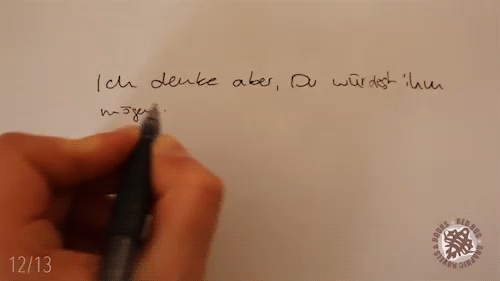 Ich denke aber, Du würdest ihm
mögen.
12/13